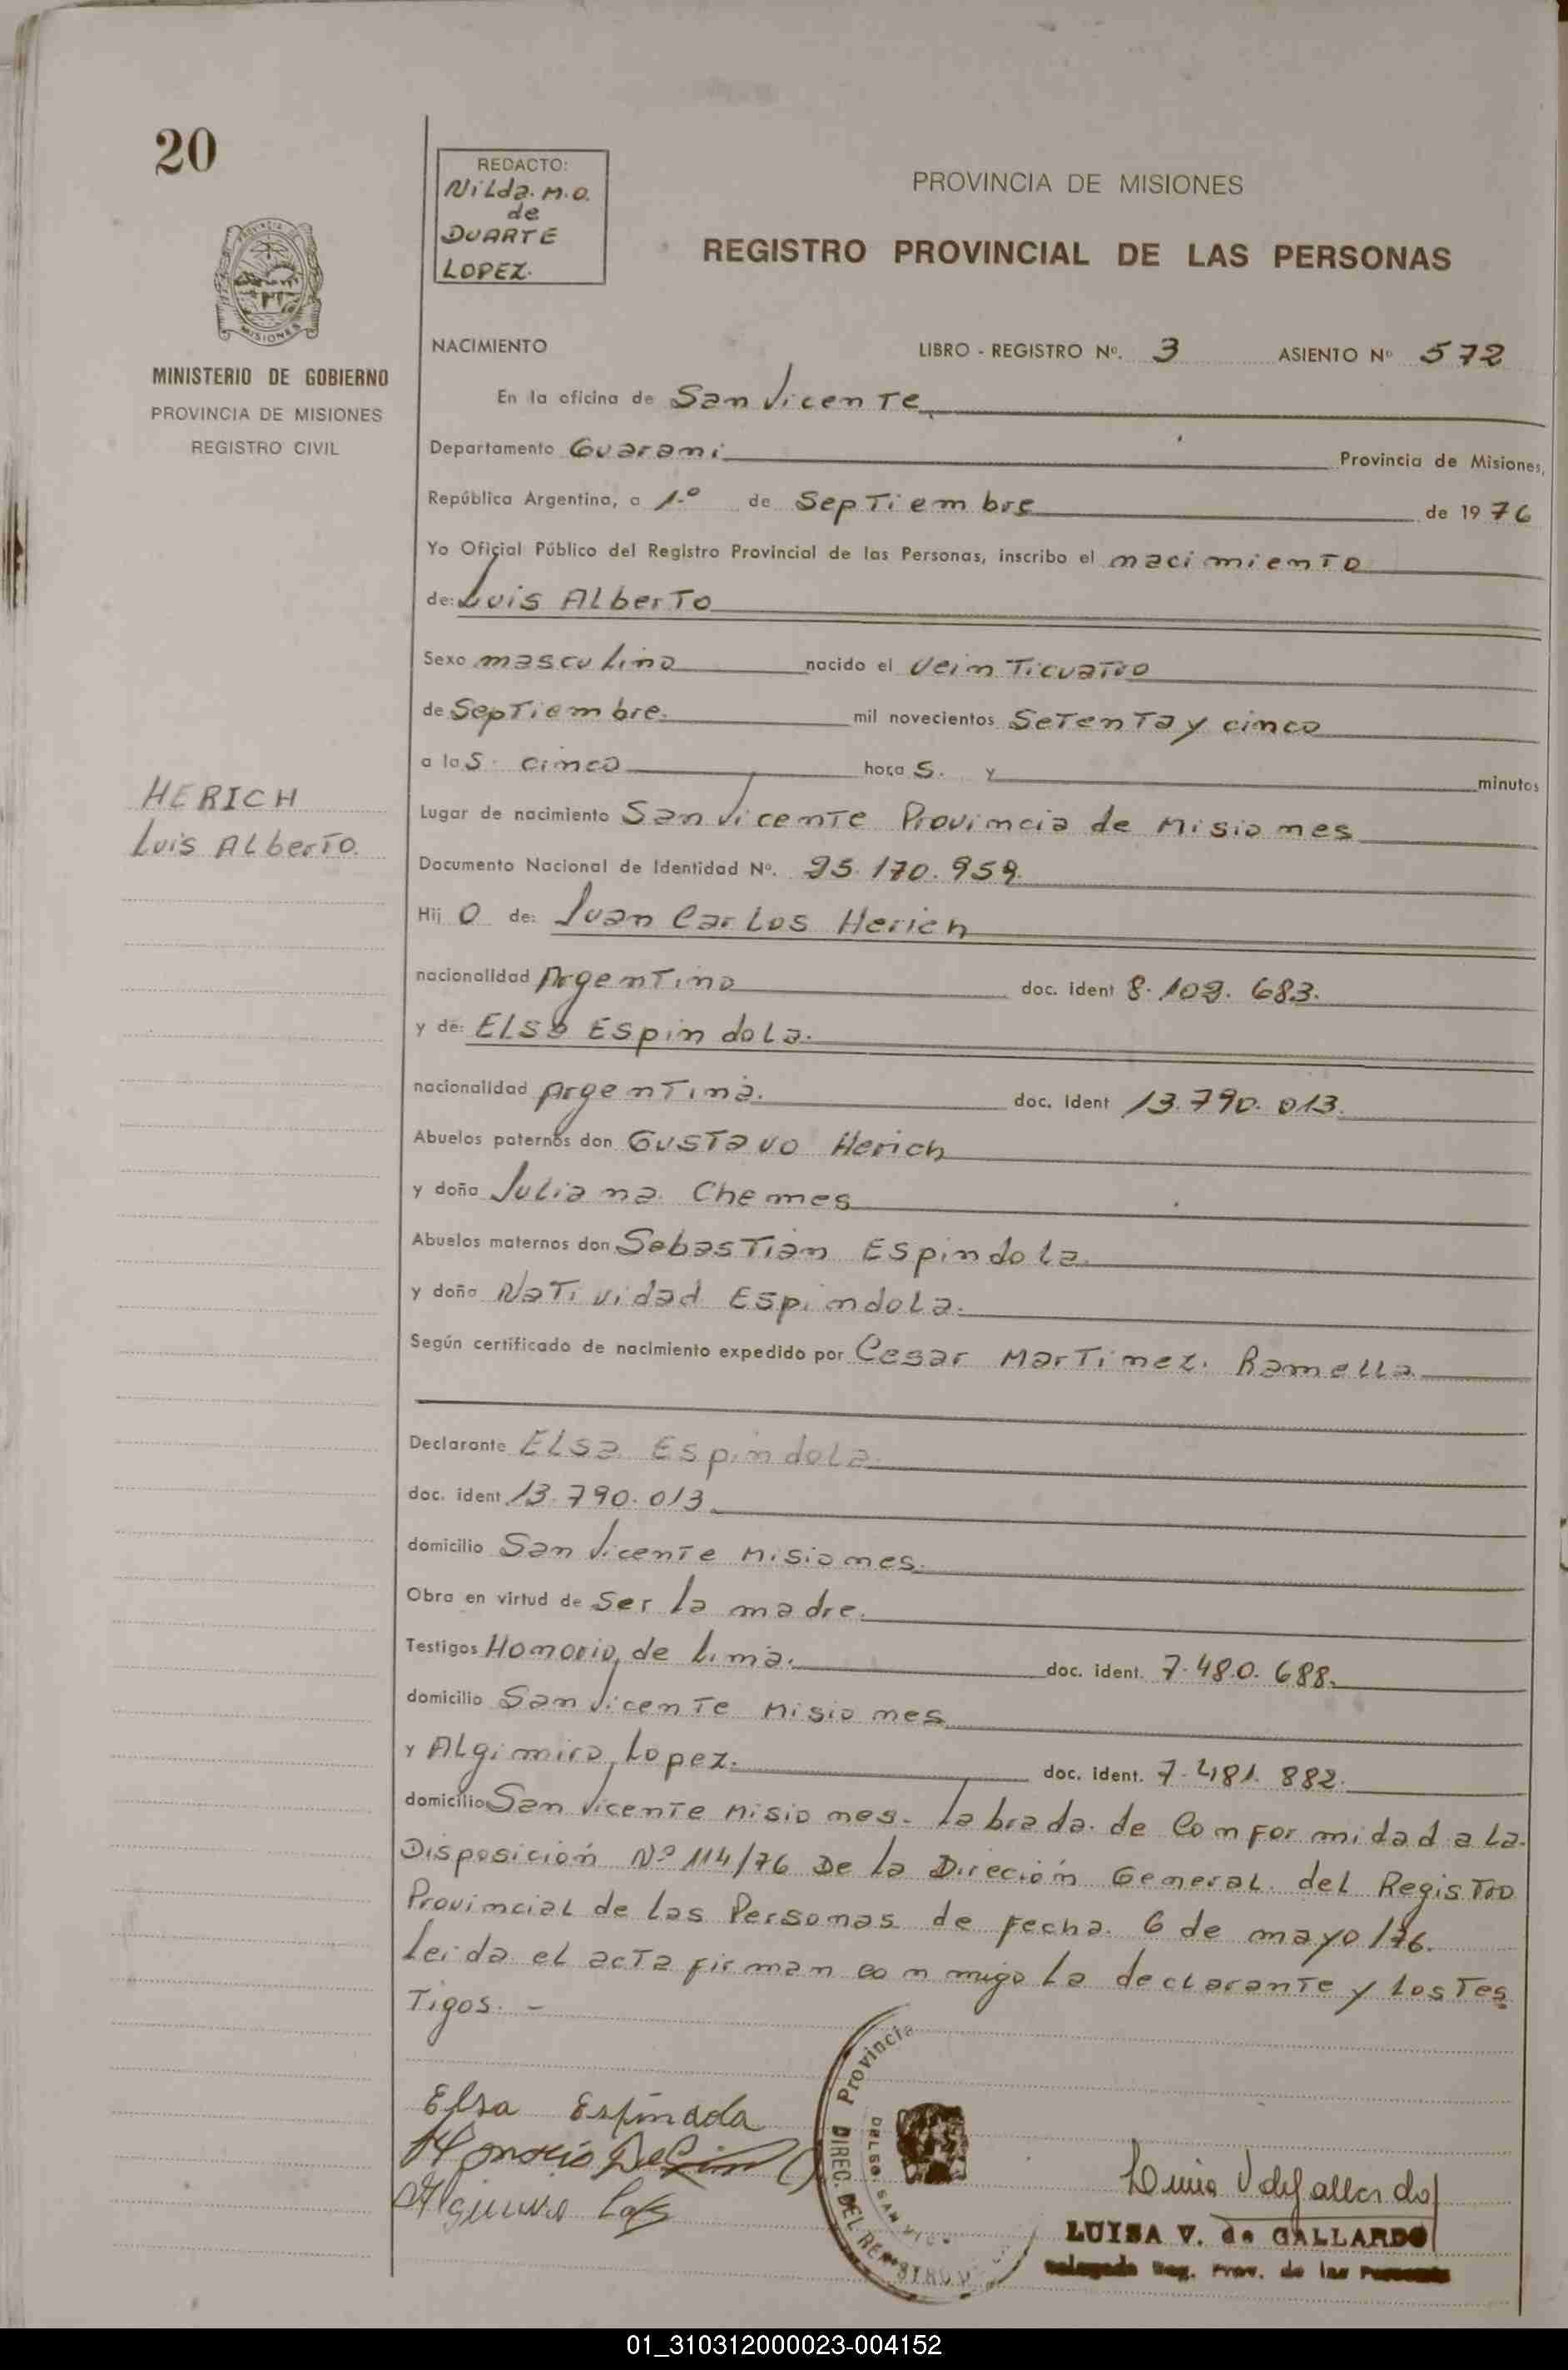 20
REDACTO:
Nilda. M.O.
de
DUARTE
LOPEZ.
PROVINCIA DE MISIONES
REGISTRO PROVINCIAL DE LAS PERSONAS
MISIONES
MINISTERIO DE GOBIERNO
PROVINCIA DE MISIONES
REGISTRO CIVIL
NACIMIENTO LIBRO - REGISTRO Nº. 3 ASIENTO Nº 572
En la oficina de San Vicente
Departamento Guarani Provincia de Misiones,
República Argentina, a 1.º de Septiembre de 1976
Yo Oficial Público del Registro Provincial de las Personas, inscribo el nacimiento
de: Luis Alberto
Sexo masculino nacido el veinticuatro
de Septiembre. mil novecientos setenta y cinco
a las cinco horas. y minutos
HERICH
Luis Alberto.
Lugar de nacimiento San Vicente Provincia de Misiones
Documento Nacional de Identidad Nº. 25.170.959.
Hijo de: Juan Carlos Herich
nacionalidad Argentino doc. ident 8.109.683.
y de: Elsa Espindola.
nacionalidad Argentina. doc. ident 13.790.013.
Abuelos paternos don Gustavo Herich
y doña Juliana Chemes
Abuelos maternos don Sebastián Espindola.
y doña Natividad Espindola.
Según certificado de nacimiento expedido por Cesar Martinez. Ramella
Declarante Elsa Espindola
doc. ident. 13.790.013
domicilio San Vicente Misiones.
Obra en virtud de ser la madre.
Testigos Honorio, de Lima. doc. ident. 7.480.688.
domicilio San Vicente Misiones
y Algimiro, Lopez. doc. ident. 7.481.882.
domicilio San Vicente Misiones. Labrada de Conformidad a la
Disposición Nº 114/76 De la Direción General del Registro
Provincial de las Personas de fecha 6 de mayo/76.
Leida el acta firman conmigo la declarante y los Tes
Tigos. -
Elsa Espinada
Honorio De Lima
Provincia
DIREC. DEL REGISTRO
DELEG. SAN VIC
Luisa V de Gallardo
LUISA V. de GALLARDO
Delegada Reg. Prov. de las Personas
01_310312000023-004152